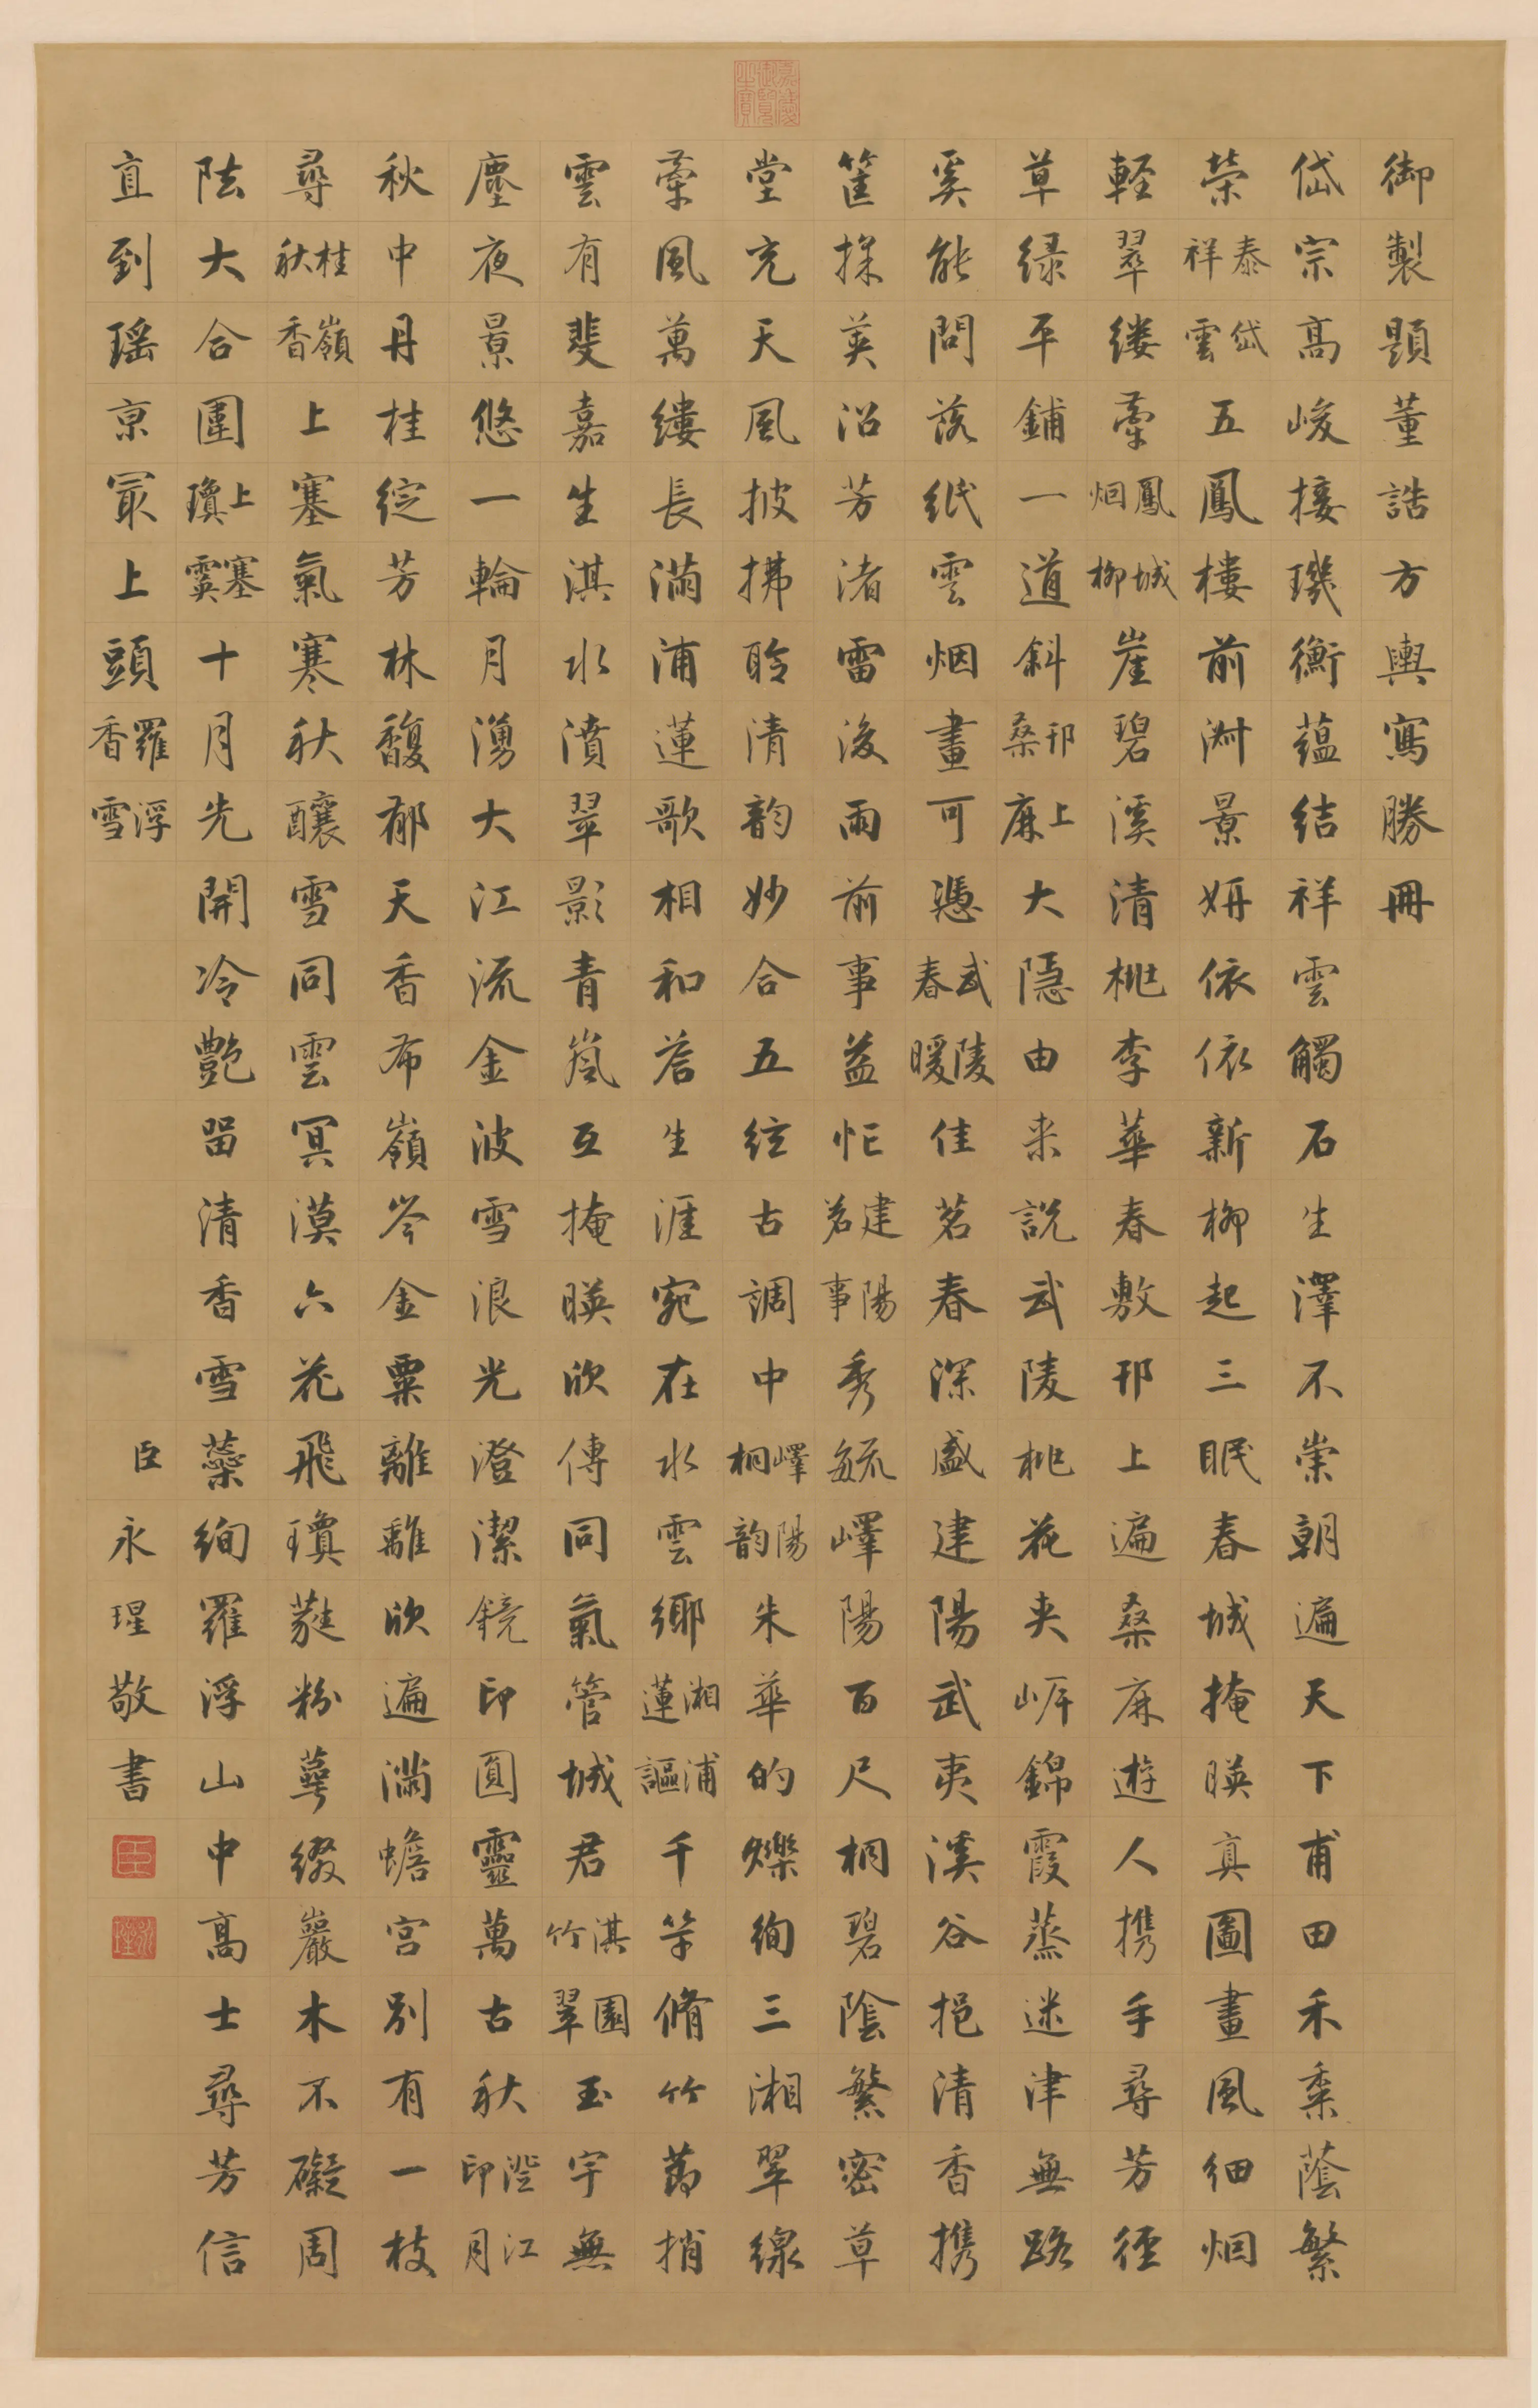 嘉慶御覽之寶
御製題董誥方輿寫勝冊
岱宗高峻接璣衡蘊結祥雲觸石生澤不崇朝遍天下甫田禾黍蔭繁
榮泰岱祥雲五鳳樓前淑景妍依依新柳起三眠春城掩暎真圖畫風細烟
輕翠縷牽鳳城烟柳崖碧溪清桃李華春敷邗上遍桑麻遊人携手尋芳徑
草緑平鋪一道斜邗上桑麻大隱由来說武陵桃花夾岸錦霞蒸迷津無路
奚能問落紙雲烟畫可憑武陵春暖佳茗春深盛建陽武夷溪谷挹清香携
筐採英沿芳渚雷後雨前事益忙建陽茗事秀毓嶧陽百尺桐碧陰繁密草
堂充天風披拂聆清韵妙合五絃古調中嶧陽桐韵朱華的爍絢三湘翠線
牽風萬縷長滿浦蓮歌相和答生涯宛在水雲鄉湘浦蓮謳千竿脩竹節捎
雲有斐嘉生淇水濆翠影青嵐互掩暎欣傳同氣管城君淇園竹翠玉宇無
塵夜景悠一輪月湧大江流金波雪浪光澄潔鏡印圓靈萬古秋澄江印月
秋中丹桂綻芳林馥郁天香布嶺岑金粟離離欣遍滿蟾宮別有一枝
尋桂嶺秋香上塞氣寒秋釀雪同雲冥漠六花飛瓊蕤粉萼綴巖木不礙周
阹大合圍上塞瓊霙十月先開冷艷留清香雪蘂絢羅浮山中高士尋芳信
直到瑤京最上頭羅浮香雪
臣永瑆敬書
臣
永瑆